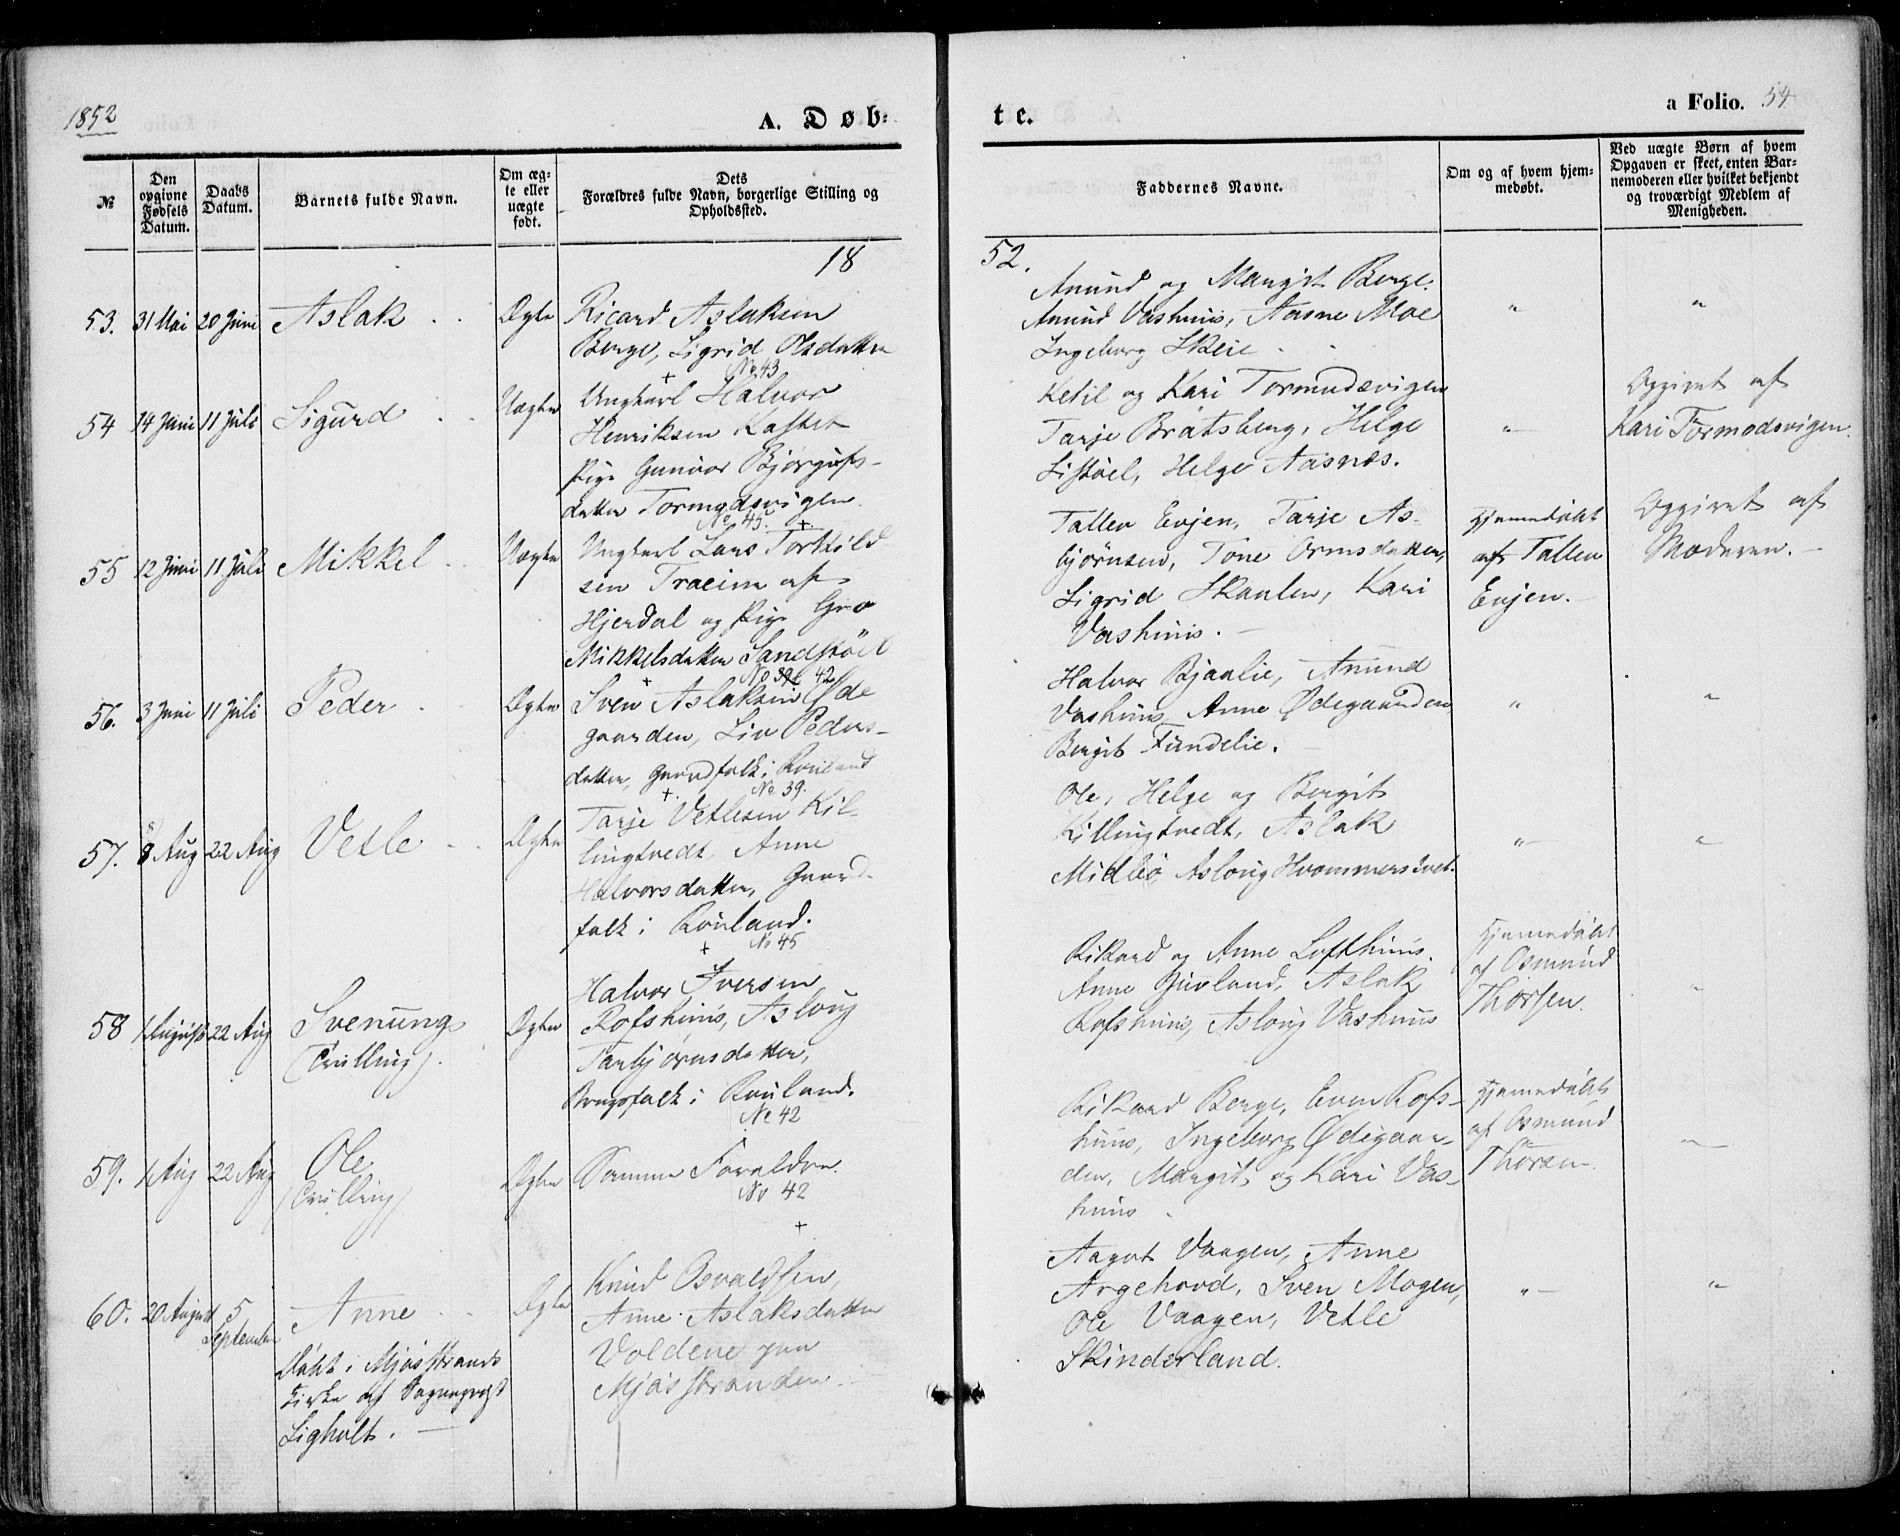 1852
A. Døb-
te.
a Folio. 54
№
Den opgivne Fødsels Datum.
Daabs Datum.
Barnets fulde Navn.
Om ægte eller uægte født.
Dets
Forældres fulde Navn, borgerlige Stilling og
Opholdssted.
Faddernes Navne.
Om og af hvem hjem-
medøbt.
Ved uægte Børn af hvem
Opgaven er skeet, enten Bar-
nemoderen eller hvilket bekjendt
og troværdigt Medlem af
Menigheden.
18
52.
53. 31 Mai 20 Juni Aslak Ægte
Ricard Aslaksen
Berge, Sigrid Olsdatter
No. 43
Anund og Margit Berge.
Anund Vashuus, Aasne Moe
Ingeborg Skeie
" "
54 14 Juni 11 Juli Sigurd Uægte
Ungkarl Halvor
Henriksen Kastet
Pige Gunvor Bjørgufs-
datter Tormodsvigen
No 45.
Ketil og Kari Tormudsvigen
Tarje Bratsberg, Helge
Listøel, Helge Aasnæs.
"
Opgivet af
Kari Tormodsvigen.
55 12 Juni 11 Juli Mikkel Uægte
Ungkarl Lars Torkild
sen Traeim af
Hjerdal og Pige Gro
Mikkelsdatter Sandstöel
No 39 42
Tallev Evjen, Tarje As-
bjørnsen, Tone Ormsdatter,
Sigrid Skaulen, Kari
Vashuus.
Hjemmedøbt
af Tallev
Evjen.
Opgivet af
Moderen.
56. 3 Juni 11 Juli Peder Ægte
Sven Aslaksen Øde
gaarden, Liv Peders-
datter, Gaardfolk i Rouland
No 39.
Halvor Bjaalie, Anund
Vashuus, Anne Ødegaarden
Bergit Fundelie.
" "
57. 8 Aug 22 Aug Vetle Ægte
Tarje Vetlesen Kil-
lingtvedt, Anne
Halvorsdatter, Gaard-
folk i Rouland.
No 45
Ole, Helge og Bergit
Killingtvedt, Aslak
Midbö, Asloug Hvommerstvet.
" "
58 1 August 22 Aug Svenung
(Tvilling). Ægte
Halvor Iversen
Rofshuus, Asloug
Tarbjørnsdatter,
Brugsfolk i Rouland.
No 42
Rikard og Anne Lofthuus.
Anne Juvland, Aslak
Rofshuus, Asloug Vashuus
Hjemmedøbt
af Osmund
Thorsen.
"
59. 1 Aug 22 Aug Ole
(Tvilling) Ægte
Samme Forældre.
No 42
Rikard Berge, Even Rofs-
huus, Ingeborg Ødegaar-
den, Margit og Kari Vas-
huus
Hjemmedøbt
af Osmund
Thorsen.
"
60. 20 August 5
September
Anne Ægte
Døbt i Mjösstrands
Kirke af Sognepræst
Ligholt.
Knud Osvaldsen,
Anne Aslaksdatter
Voldene paa
Mjösstranden.
Aagot Vaagen, Anne
Argehovd, Sven Mogen,
Ole Vaagen, Vetle
Skinderland.
" "